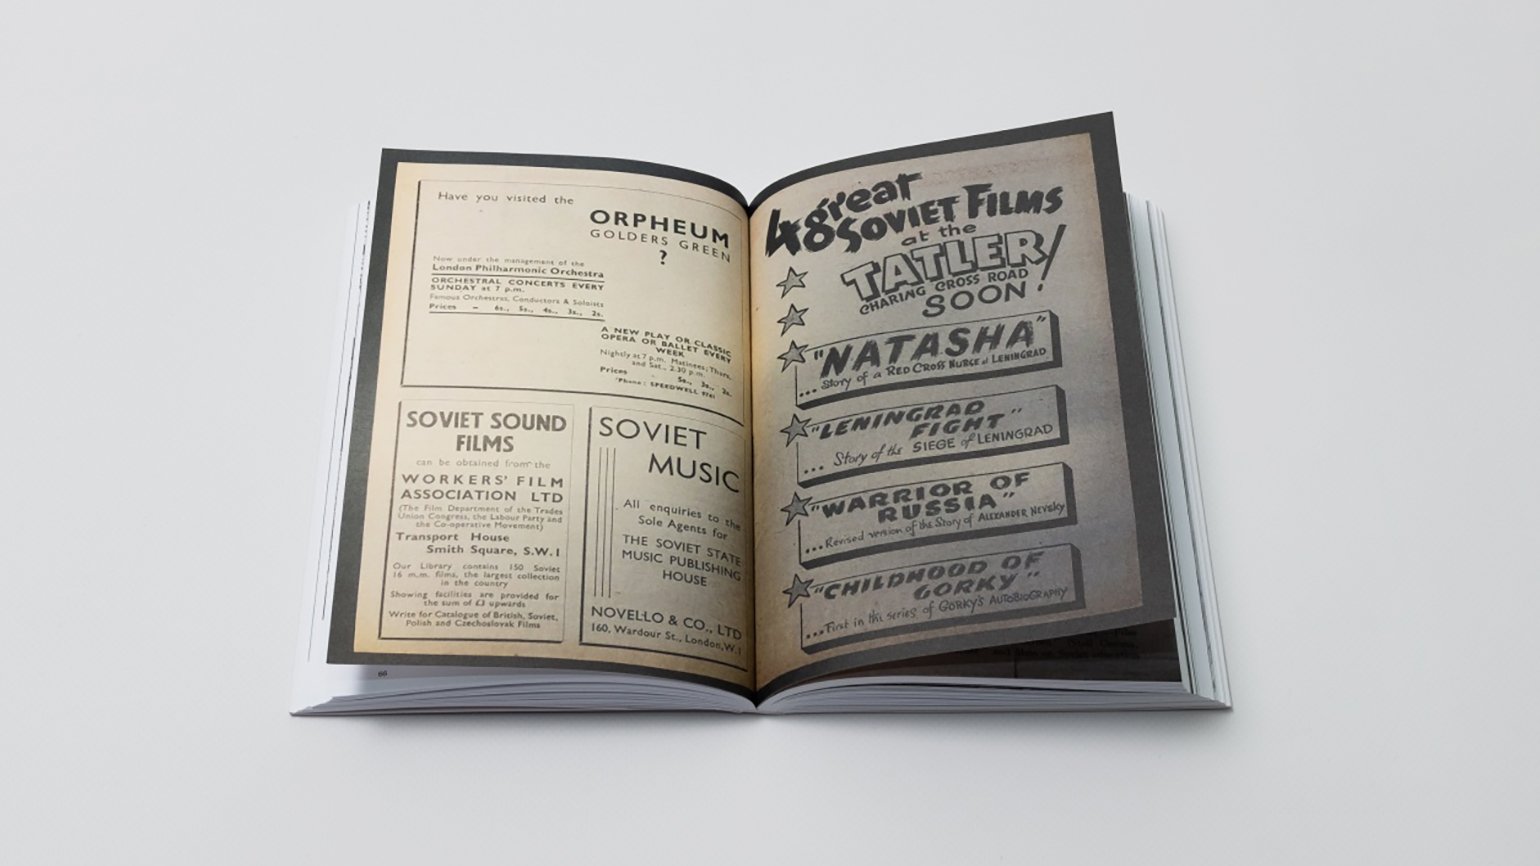 Have you visited the
ORPHEUM
GOLDERS GREEN
?
Now under the management of the
London Philharmonic Orchestra
ORCHESTRAL CONCERTS EVERY
SUNDAY at 7 p.m.
Famous Orchestras, Conductors & Soloists
Prices – 6s., 5s., 4s., 3s., 2s.
A NEW PLAY OR CLASSIC
OPERA OR BALLET EVERY
WEEK
Nightly at 7 p.m. Matinees: Thurs.
and Sat., 2.30 p.m.
Prices - 5s., 3s., 2s.
'Phone: SPEEDWELL 9741
SOVIET SOUND
FILMS
can be obtained from the
WORKERS' FILM
ASSOCIATION LTD
(The Film Department of the Trades
Union Congress, the Labour Party and
the Co-operative Movement)
Transport House
Smith Square, S.W.1
Our Library contains 150 Soviet
16 m.m. films, the largest collection
in the country
Showing facilities are provided for
the sum of £3 upwards
Write for Catalogue of British, Soviet,
Polish and Czechoslovak Films
SOVIET
MUSIC
All enquiries to the
Sole Agents for
THE SOVIET STATE
MUSIC PUBLISHING
HOUSE
NOVELLO & CO., LTD
160, Wardour St., London, W.1
66
4 great
SOVIET FILMS
at the
TATLER!
CHARING CROSS ROAD
SOON!
"NATASHA"
... Story of a RED CROSS NURSE at LENINGRAD
"LENINGRAD
FIGHT"
... Story of the SIEGE of LENINGRAD
"WARRIOR OF
RUSSIA"
... Revised version of the Story of ALEXANDER NEVSKY
"CHILDHOOD OF
GORKY"
... First in this series of GORKY'S AUTOBIOGRAPHY